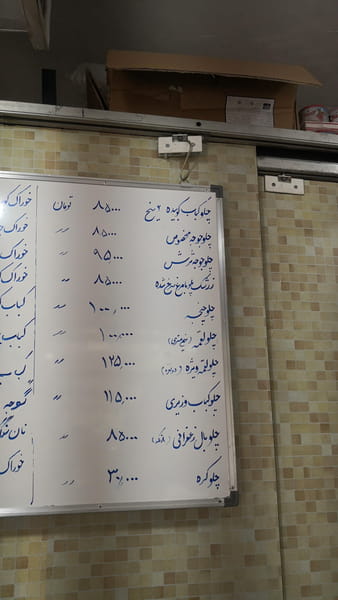 چلوکباب کوبیده ۲ سیخ ۸۵۰۰۰ تومان
چلوجوجه مخصوص ۸۵۰۰۰ ״
چلوجوجه ترش ۹۵۰۰۰ ״
زرشک پلو با مرغ ۸۵۰۰۰ ״
چلو ۱۰۰,۰۰۰ ״
چلو لقمه ۱۰۰,۰۰۰ ״
چلو لقمه ویژه ۱۲۵,۰۰۰ ״
چلوکباب وزیری ۱۱۵,۰۰۰ ״
چلو بال زعفرانی ۸۵۰۰۰ ״
چلو کره ۳۰,۰۰۰ ״
خوراک
خوراک
خوراک
خوراک
کباب
کباب
کباب
گوجه
نان سنگک
خوراک